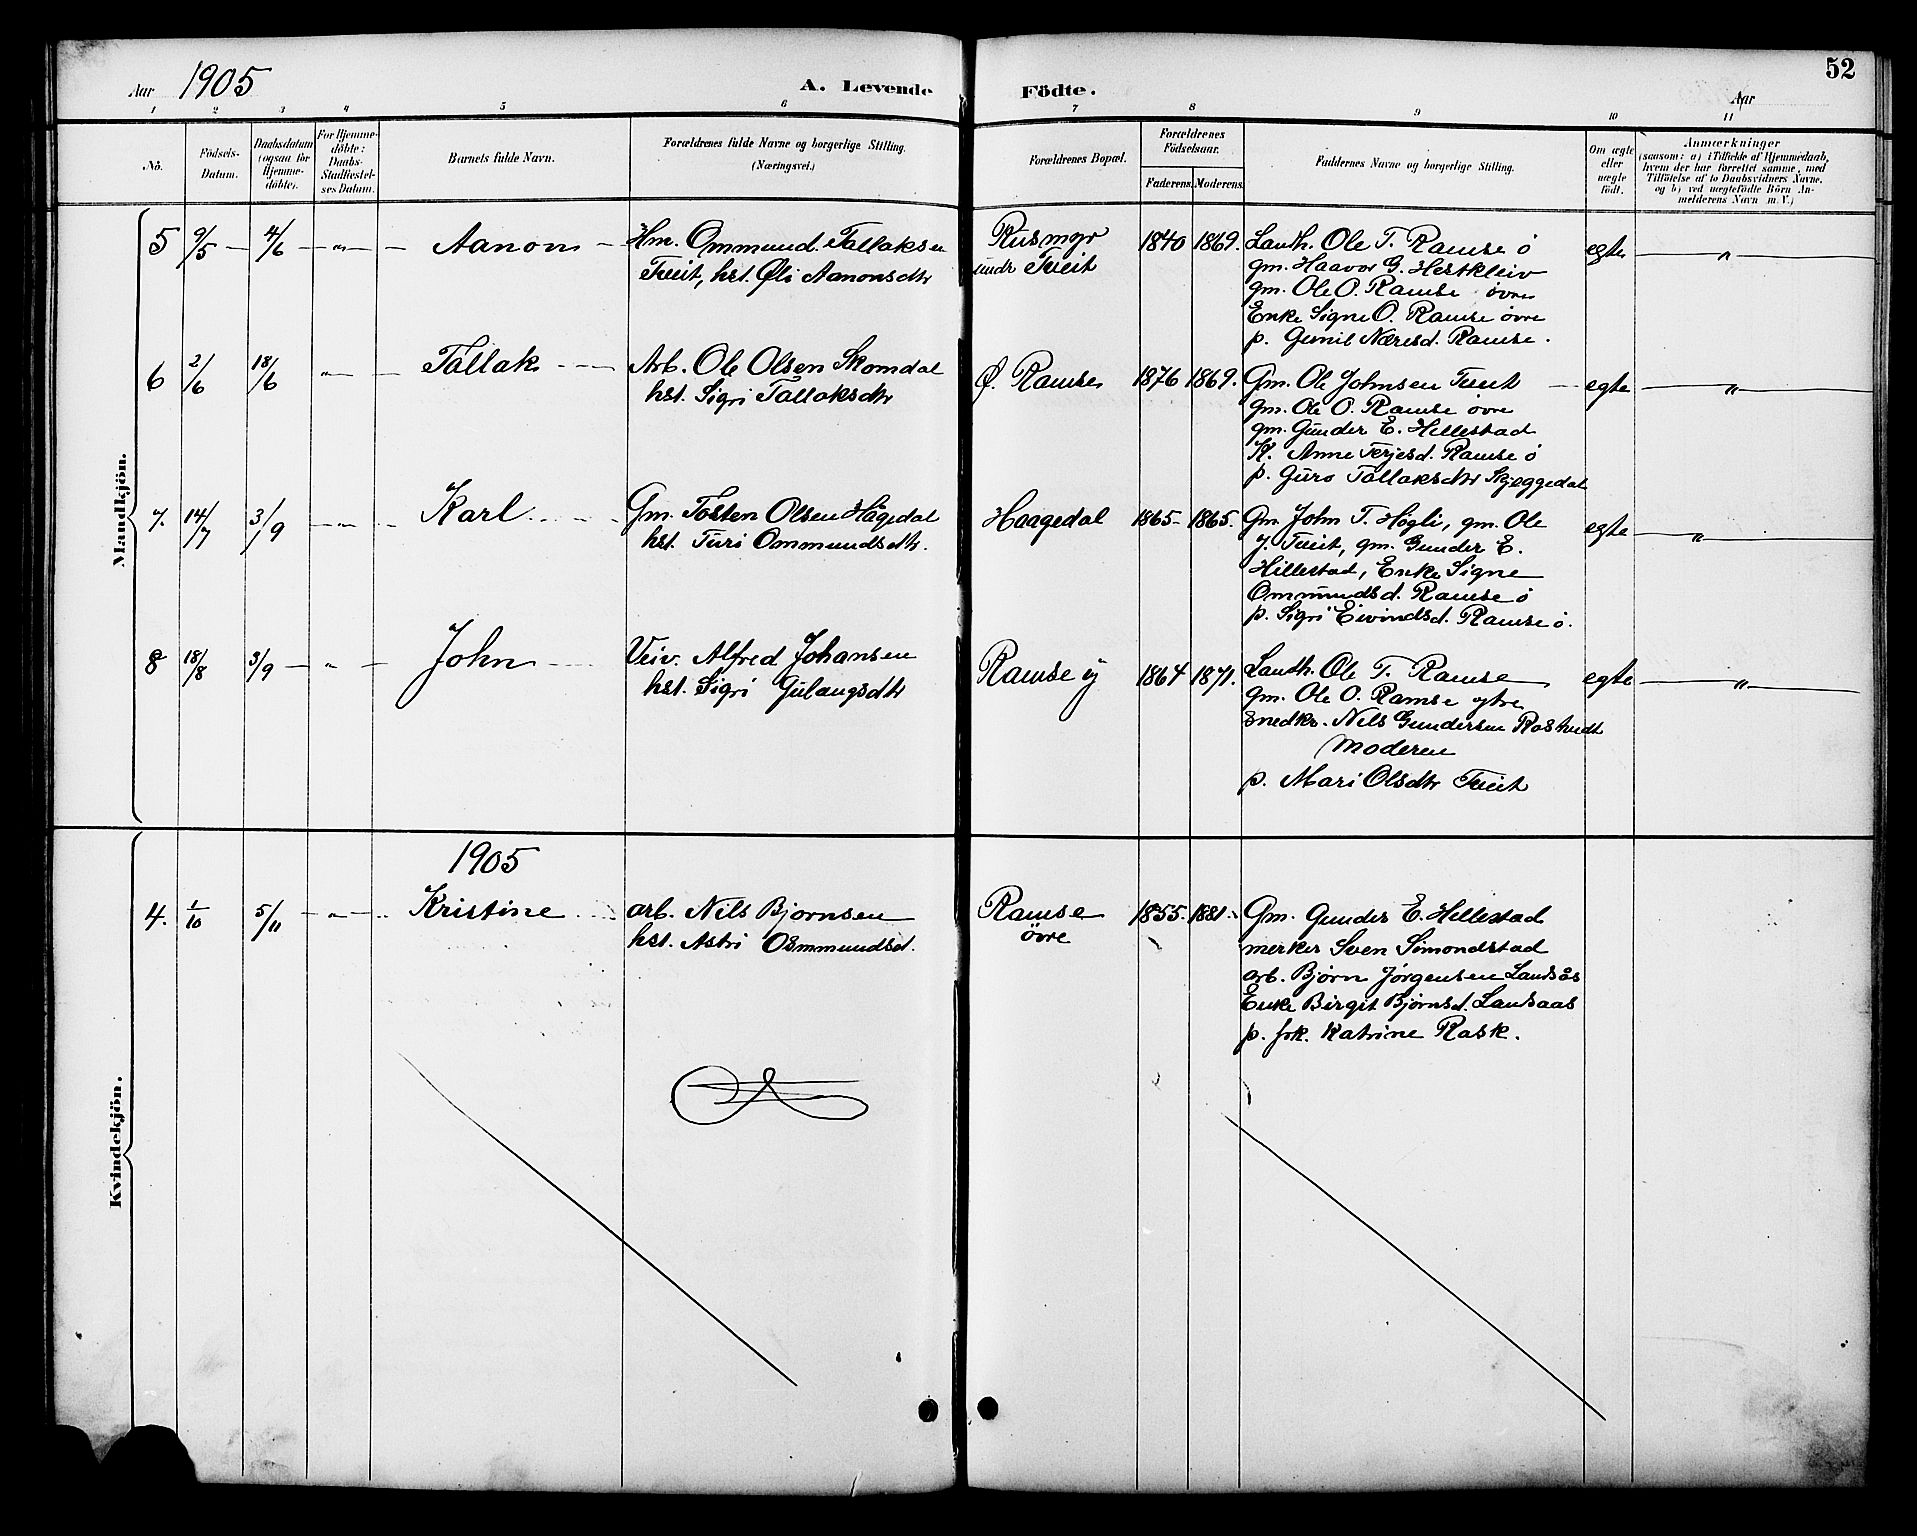 52
Aar 1905 A. Levende Födte. Aar
1 2 3 4 5 6 7 8 9 10 11
No. Födsels-Datum. Daabsdatum (ogsaa for Hjemmedöbte). For Hjemmedöbte: Daabs-Stadfæstelses Datum. Barnets fulde Navn. Forældrenes fulde Navne og borgerlige Stilling. (Næringsvei.) Forældrenes Bopæl. Forældrenes Födselsaar. Faderens. Moderens. Faddernes Navne og borgerlige Stilling. Om ægte eller uægte födt. Anmærkninger
(saasom: a) i Tilfælde af Hjemmedaab, hvem der har forrettet samme, med Tilföielse af to Daabsvidners Navne, og b) ved uægtefödte Börn Anmelderens Navn m. V.)
Mandkjön.
5 9/5 — 4/6 — „ — Aanon — Hm. Ommund Tallaksen Rusmyr 1840 1869. Landh. Ole T. Ramse ö egte — „ —
Tveit, hst. Øli Aanonsdtr undr Tveit gm. Haavor G. Hestkleiv
gm. Ole O. Ramse övre
Enke Signe O. Ramse øvre
p. Gunil Næresd. Ramse.
6 2/6 18/6 „ — Tallak — Arb. Ole Olsen Skomdal Ø. Ramse 1876 1869. Gm. Ole Johnsen Tveit — egte — „ —
hst. Sigri Tallaksdtr gm. Ole O. Ramse övre
gm. Gunder E. Hillestad
K. Anne Terjesd. Ramse ö
p. Guro Tallaksdtr Skjeggedal
7. 14/7 3/9 — „ — Karl — Gm. Tosten Olsen Hågedal Haagedal 1865- 1865. Gm. John T. Högli, gm. Ole egte — „ —
hst. Turi Ommundsdtr. J. Tveit, gm. Gunder E.
Hillestad, Enke Signe
Ommundsd. Ramse ö
p. Sigri Eivindsd. Ramse ö.
8 18/8 3/9 — „ — John — Veiv. Alfred Johansen Ramse y 1864 1871. Landh. Ole T. Ramse egte — „ —
hst. Sigri Gulaugsdtr gm. Ole O. Ramse ytre
snedkr. Nils Gundersen
Moderen
p. Mari Olsdtr Tveit
Kvindekjön.
1905
4. 1/10 5/11 — „ — Kristine — arb. Nils Bjornsen Ramse 1855. 1881. Gm. Gunder E. Hillestad
hst. Astri Osmmundsd. øvre merker Sven Simondstad
arb. Bjørn Jørgensen Landsås
Enke Birgit Bjørnsd. Landsaas
p. frk. Katrine Rask.